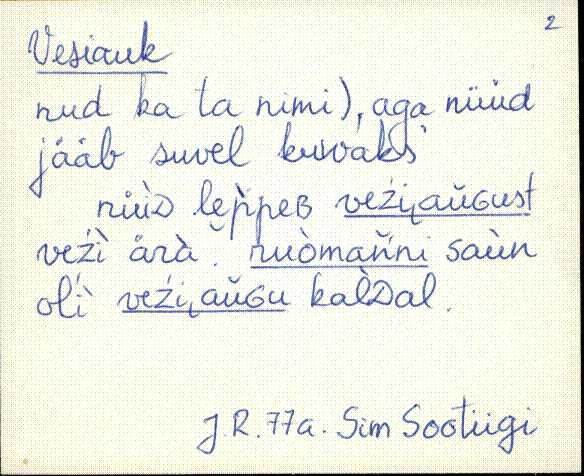 2
Vesiauk
nud ka ta nimi), aga nüüd
jääb suvel kuivaks
nüùD lep̀peB veźi̮aŭGust
veźì ärà. ruòmañ̀ni saùn
oĺì veźi̮aŭGu kaĺDal.
J.R. 77a. Sim Sootiigi